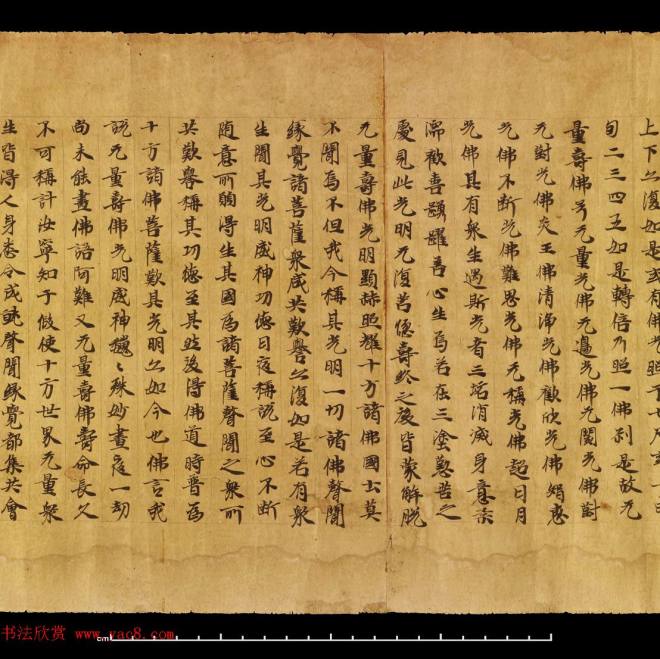 上下亦復如是或有佛光照于
旬二三四五如是轉倍乃照一佛刹是故无
量壽佛号无量光佛无邊光佛无閡光佛
无對光佛炎王光佛清淨光佛歡欣光佛
光佛不斷光佛難思光佛无稱光佛超日月
光佛其有衆生遇斯光者三垢消滅身意柔
濡歡喜踊躍善心生焉若在三塗懃苦之
處見此光明无復苦惱壽終之後皆蒙解脫
无量壽佛光明顯赫照耀十方諸佛國土莫
不聞焉不但我今稱其光明一切諸佛聲聞
緣覺諸菩薩衆咸共歎譽亦復如是若有衆
生聞其光明威神功德日夜稱說至心不斷
隨意所願得生其國爲諸菩薩聲聞之衆所
共歎譽稱其功德至其然後得佛道時普爲
十方諸佛菩薩歎其光明亦如今也佛言我
說无量壽佛光明威神巍々殊妙晝夜一劫
尚未能盡佛語阿難又无量壽佛壽命長久
不可稱計汝寧知乎假使十方世界无量衆
生皆得人身悉令成就聲聞緣覺都集共會
书法欣赏 www.yac8.com
cm